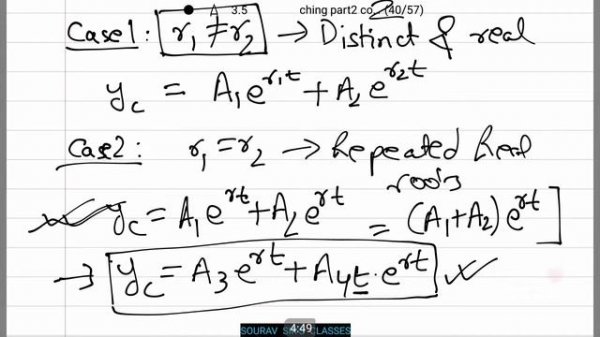 3.5 ching part2 co... (40/57)
Case 1: r₁ ≠ r₂ → Distinct & real
y_c = A₁e^{r₁t} + A₂e^{r₂t}
Case 2: r₁ = r₂ → Repeated Real
roots
y_c = A₁e^{rt} + A₂e^{rt} = (A₁+A₂)e^{rt}]
→ y_c = A₃e^{rt} + A₄t·e^{rt} ✓
4:49
SOURAV CLASSES